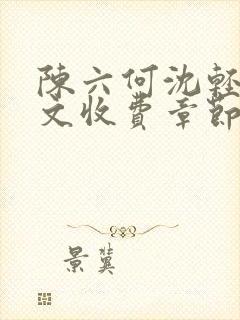 陳六何沈輕
文收費章節
景冀